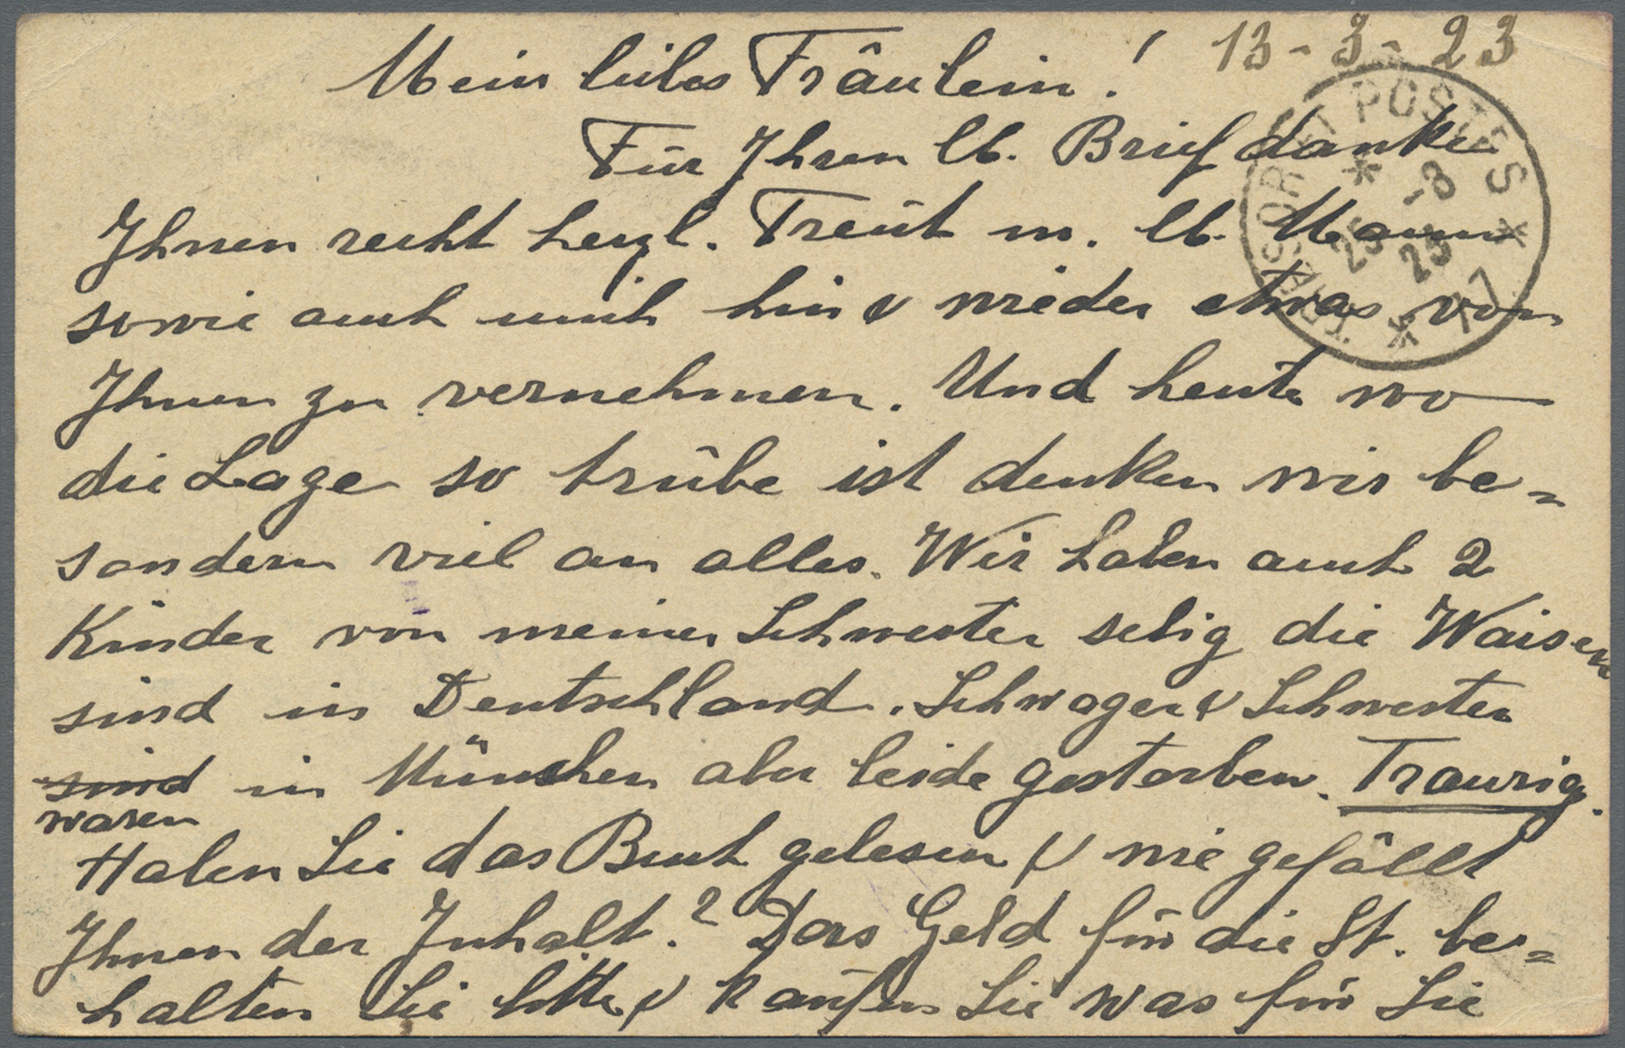 13-3-23
Mein liebes Fräulein!
Für Ihren lb. Brief danke
Ihnen recht herzl. Freut m. lb. Mann
sowie auch mich hin & wieder etwas von
Ihnen zu vernehmen. Und heute wo
die Lage so trübe ist denken wir be=
sondern viel an alles. Wir haben auch 2
Kinder von meiner Schwester selig die Waisen
sind in Deutschland. Schwager & Schwester
sind in München aber leide gestorben. Traurig.
waren
Haben Sie das Buch gelesen & wie gefällt
Ihnen der Inhalt.? Das Geld für die St. be=
halten Sie bitte & kaufen Sie was für Sie
POSTES
25
-3
23
-17